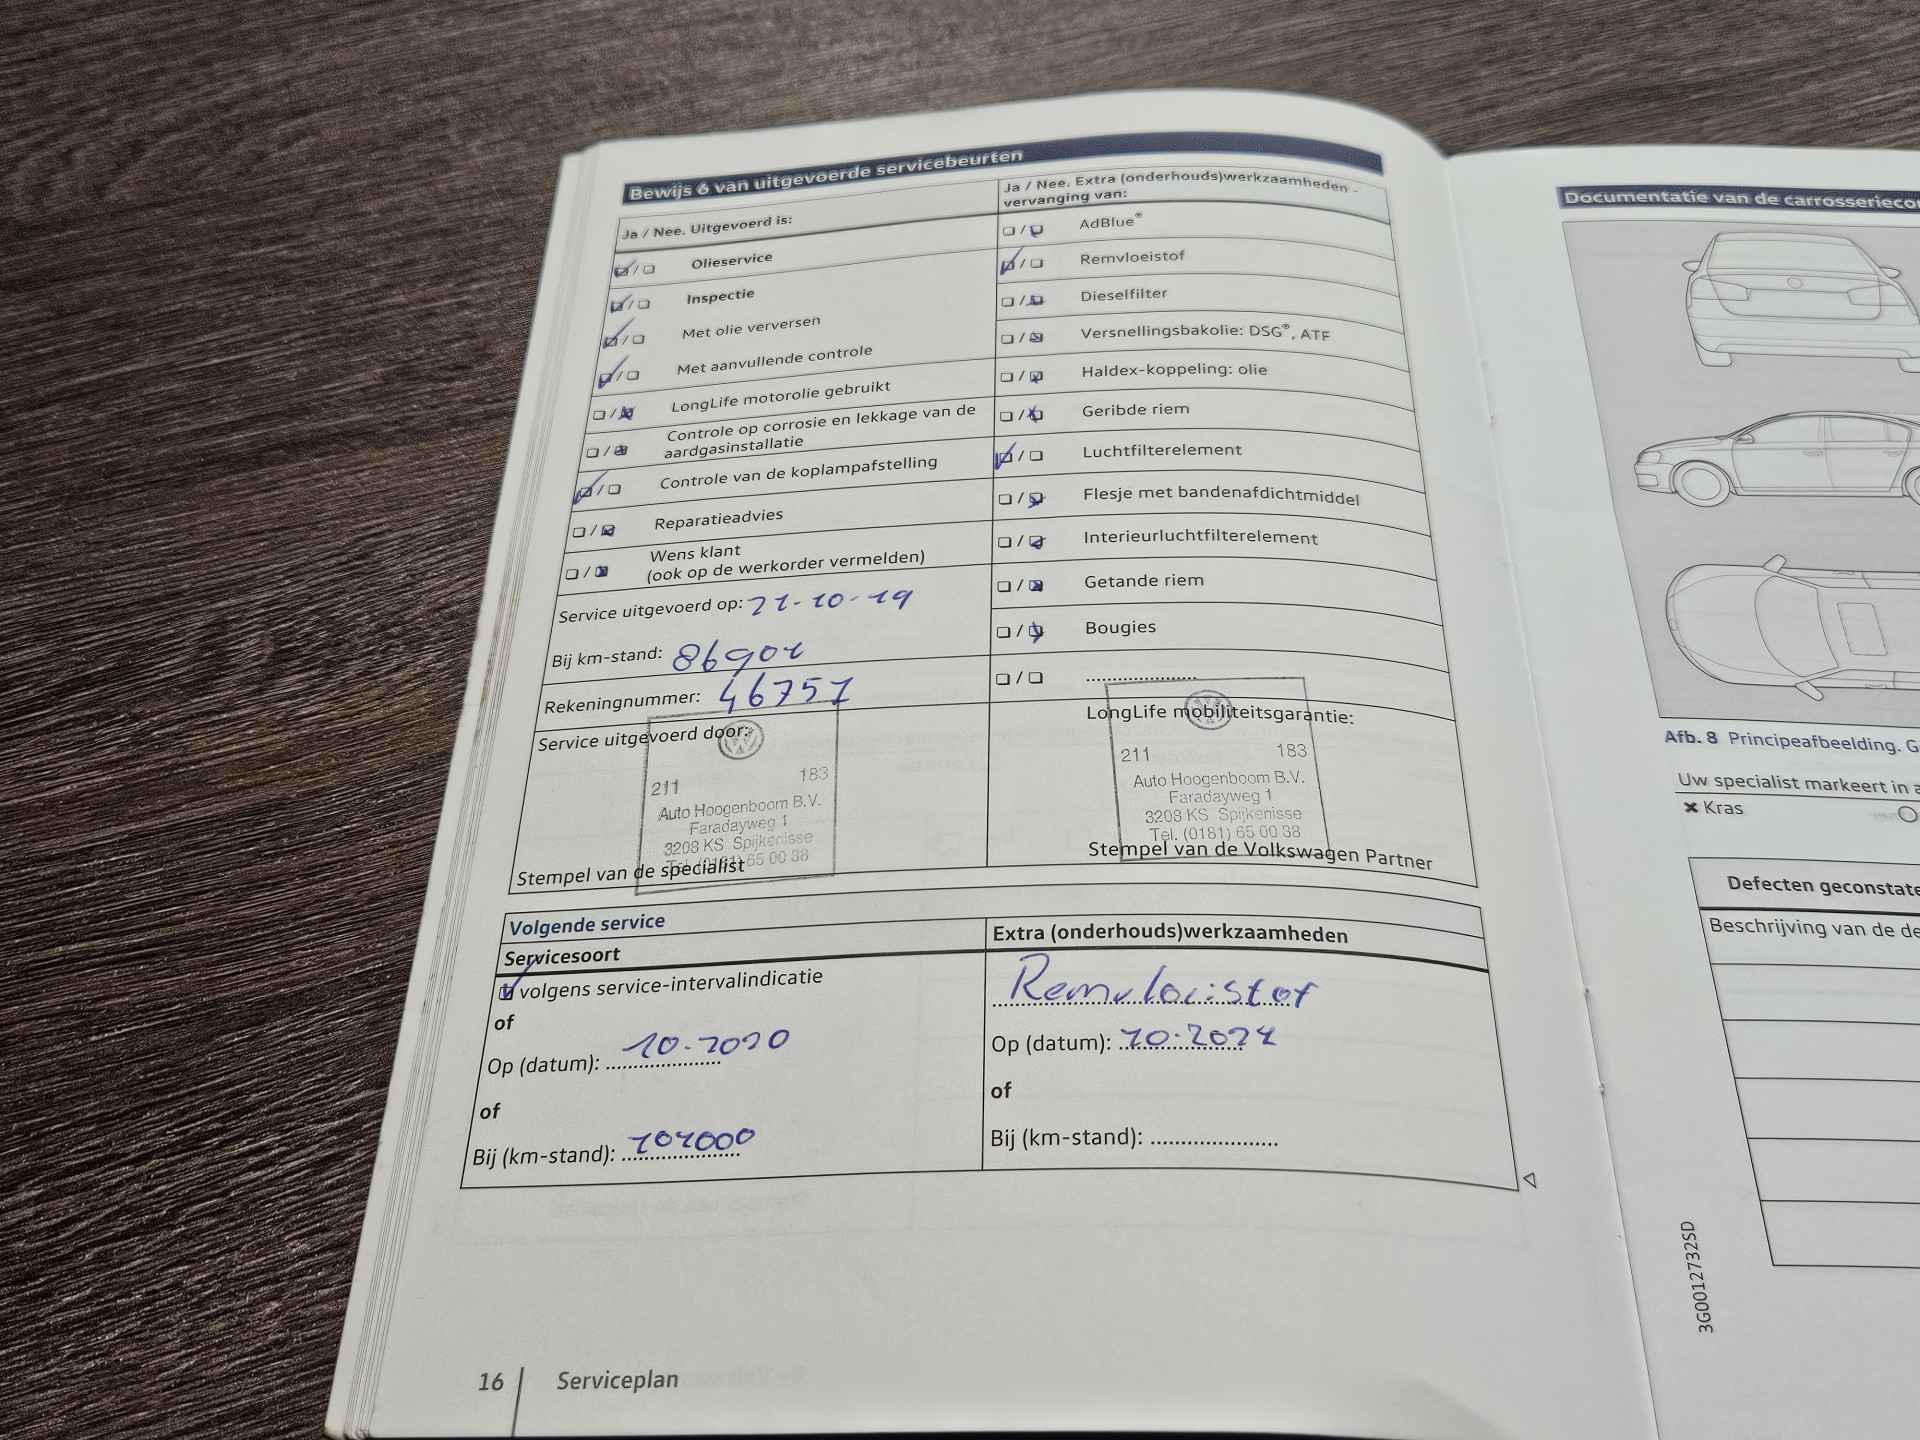 Bewijs 6 van uitgevoerde servicebeurten
Ja / Nee. Uitgevoerd is:
Olieservice
Inspectie
Met olie verversen
Met aanvullende controle
LongLife motorolie gebruikt
Controle op corrosie en lekkage van de
aardgasinstallatie
Controle van de koplampafstelling
Reparatieadvies
Wens klant
(ook op de werkorder vermelden)
Service uitgevoerd op: 21-10-19
Bij km-stand: 86901
Rekeningnummer: 46751
Service uitgevoerd door:
211 183
Auto Hoogenboom B.V.
Faradayweg 1
3208 KS Spijkenisse
Tel. (0181) 65 00 38
Stempel van de specialist
Ja / Nee. Extra (onderhouds)werkzaamheden -
vervanging van:
AdBlue®
Remvloeistof
Dieselfilter
Versnellingsbakolie: DSG®, ATF
Haldex-koppeling: olie
Geribde riem
Luchtfilterelement
Flesje met bandenafdichtmiddel
Interieurluchtfilterelement
Getande riem
Bougies
LongLife mobiliteitsgarantie:
211 183
Auto Hoogenboom B.V.
Faradayweg 1
3208 KS Spijkenisse
Tel. (0181) 65 00 38
Stempel van de Volkswagen Partner
Volgende service
Servicesoort
volgens service-intervalindicatie
of
Op (datum): 10-2020
of
Bij (km-stand): 101000
Extra (onderhouds)werkzaamheden
Remvloeistof
Op (datum): 10-2021
of
Bij (km-stand):
16 Serviceplan
Documentatie van de
Afb. 8 Principeafbeelding.
Uw specialist markeert in
Kras
Defecten
Beschrijving van de
3G0012732SD